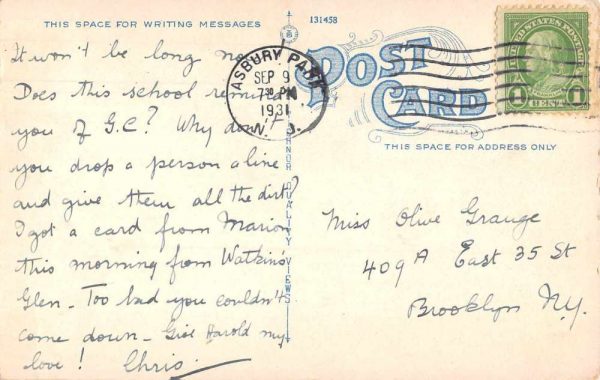 THIS SPACE FOR WRITING MESSAGES
131458
POST CARD
THIS SPACE FOR ADDRESS ONLY
UNITED STATES POSTAGE
1 CENT 1
ASBURY PARK
SEP 9
7 30 PM
1931
N. J.
QUALITY VIEWS
It won't be long no
Does this school remind
you of G.C? Why don't
you drop a person a line
and give them all the dirt?
I got a card from Marion
this morning from Watkins
Glen - Too bad you couldn't
come down - Give Harold my
love! Chris.
Miss Olive Grange
409A East 35 St
Brooklyn N.Y.